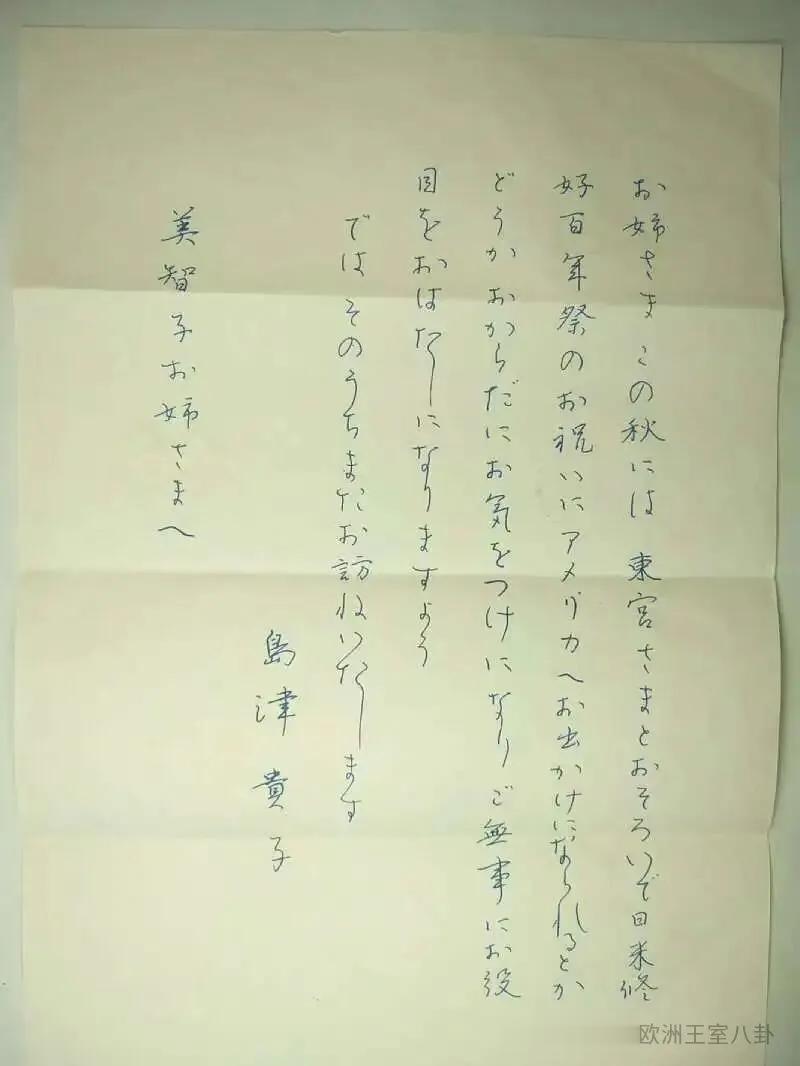 お姉さま この秋には 東宮さまとおそろいで日米修
好百年祭のお祝いにアメリカへお出かけになられるとか
どうかおからだにお気をつけになり ご無事にお役
目をおはたしになりますよう
ではそのうちまたお訪ねいたします
島津貴子
美智子お姉さまへ
欧洲王室八卦